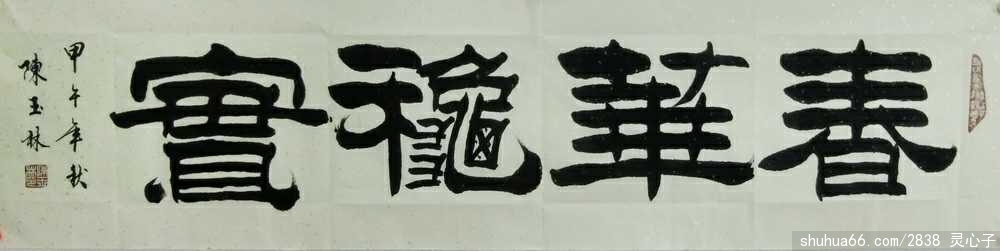 春華龝實
甲午年秋
陳玉林
shuhua66.com/2838 灵心子